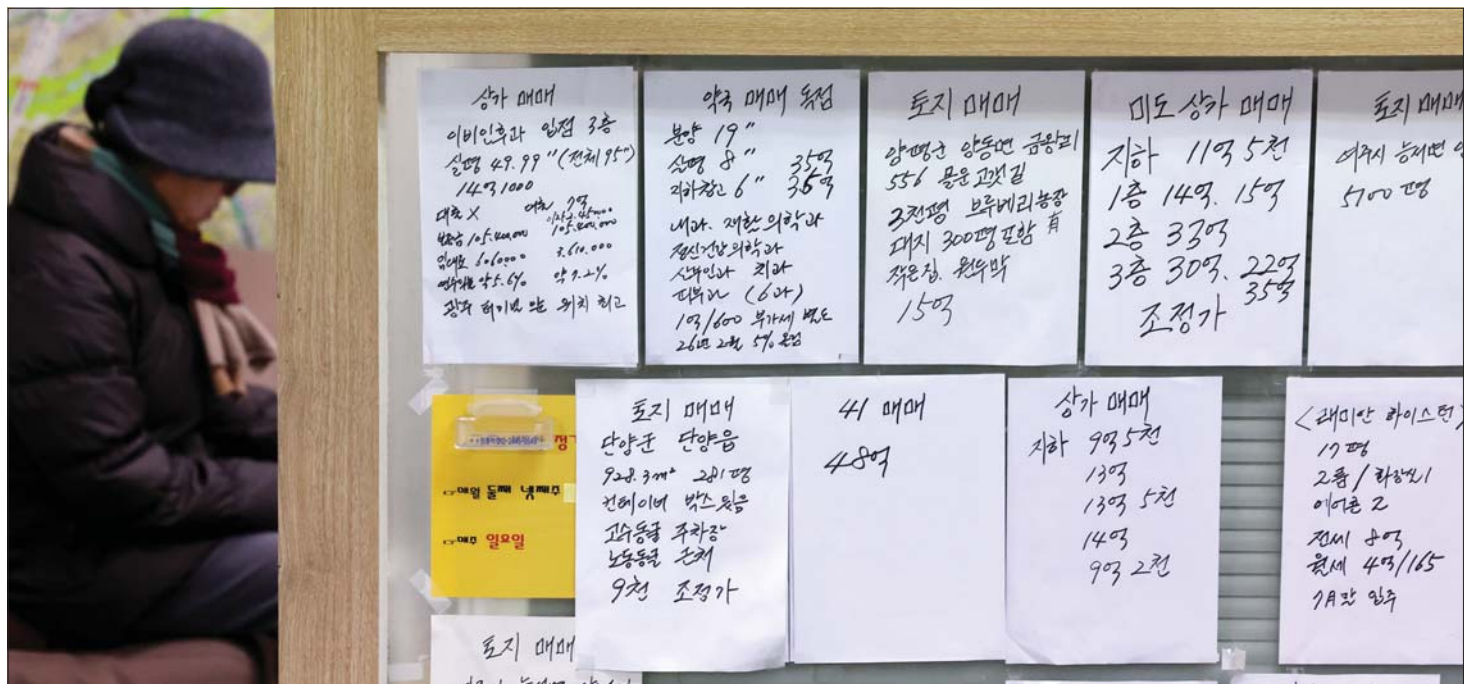 상가 매매
이비인후과 입점 3층
실평 49.99" (전체 95")
14억 1000
대출 X 대출 7억
보증금 105.400,000 105.400,000
임대료 606000 3.610.000
연수익률 약 5.6% 약 7.2%
광주 터미널 앞 위치 최고
약국 매매 독점
분양 19"
실평 8" 35억
지하창고 6" 35억
내과. 재활의학과
정신건강의학과
산부인과 치과
피부과 (6과)
1억/600 부가세 별도
26년 2월 5% 올림
토지 매매
양평군 양동면 금왕리
556 몰운고갯길
3천평 브루베리농장
대지 300평 포함 有
작은집. 원두막
15억
미도 상가 매매
지하 11억 5천
1층 14억. 15억
2층 33억
3층 30억. 22억
35억
조정가
토지 매매
여주시
5700평
정기
매월 둘째 넷째주
매주 일요일
토지 매매
단양군 단양읍
928.3m² 281평
컨테이너 박스 있음
고수동굴 주차장
노동동굴 근처
9천 조정가
41 매매
48억
상가 매매
지하 9억 5천
13억
13억 5천
14억
9억 2천
<래미안 하이스턴>
17평
2룸 / 화장실 1
에어콘 2
전세 8억
월세 4억/165
7月만 입주
토지 매매